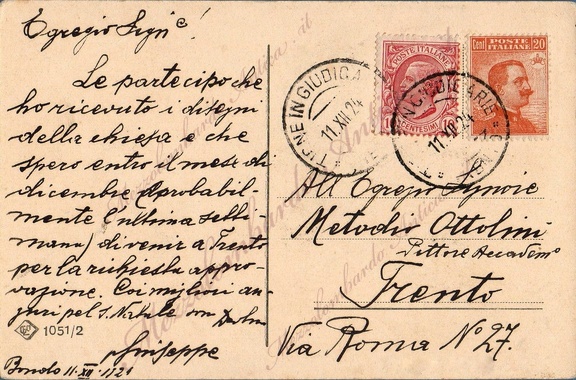 Egregio Sign.e!
Le partecipo che
ho ricevuto i disegni
della chiesa e che
spero entro il mese di
dicembre (probabil-
mente l'ultima setti-
mana) di venir a Trento
per la richiesta appro-
vazione. Coi migliori au-
guri pel S. Natale
Giuseppe
Bondo 11.XII.1924
1051/2
POSTE ITALIANE
CENTESIMI
Cent POSTE ITALIANE 20
TIONE IN GIUDICARIE
11.XII.24
11.XII.24
All'Egregio Signore
Metodio Ottolini
Pittore Accadem.o
Trento
Via Roma N.o 27.
Mezzolombardo